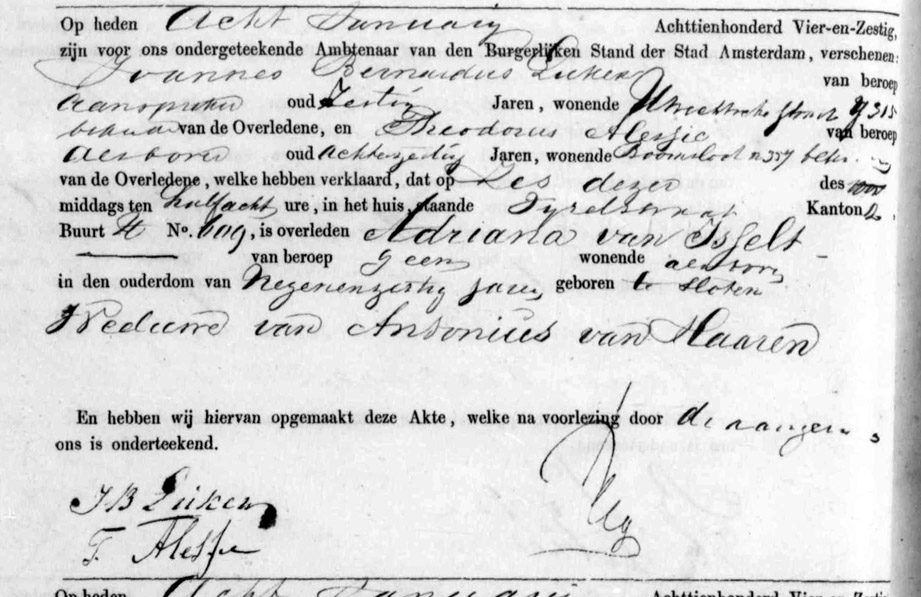 Op heden Acht Januarij Achttienhonderd Vier-en-Zestig,
zijn voor ons ondergeteekende Ambtenaar van den Burgerlijken Stand der Stad Amsterdam, verschenen:
Joannes Bernardus Luiken van beroep
aanspreker oud Zestig Jaren, wonende Utrechtschestraat 315
bekende van de Overledene, en Theodorus Alessie van beroep
als boven oud achtenzestig Jaren, wonende Boomsloot n 357
van de Overledene, welke hebben verklaard, dat op Zes dezer des
middags ten half acht ure, in het huis, staande Kanton 2,
Buurt No. 609, is overleden Adriana van Isselt
van beroep geen wonende aldaar
in den ouderdom van Negenenzestig jaren, geboren te Sloten
Weduwe van Antonius van Haaren
En hebben wij hiervan opgemaakt deze Akte, welke na voorlezing door de aangevers
ons is onderteekend.
J B Luiken
T. Alessie
Op heden Acht Januarij Achttienhonderd Vier-en-Zestig